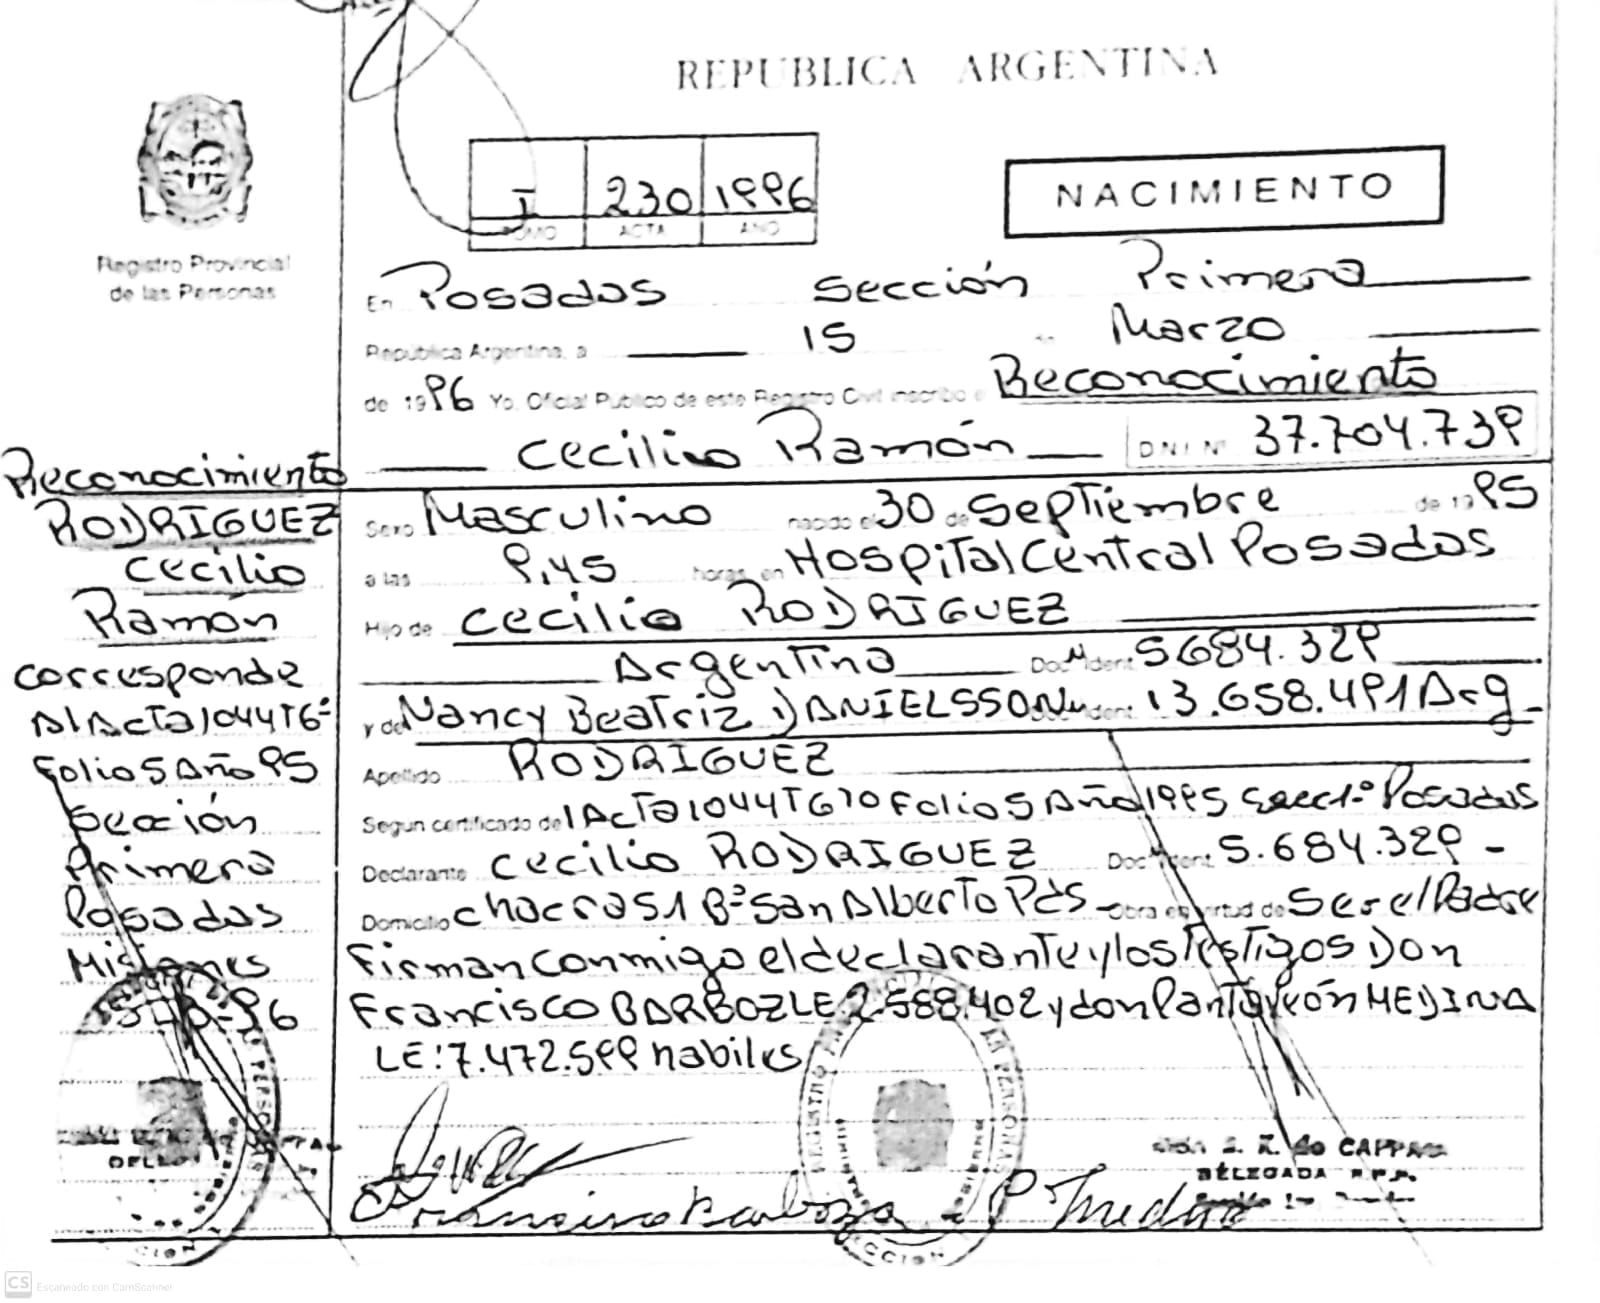 REPUBLICA ARGENTINA
I 230 1996
TOMO ACTA AÑO
NACIMIENTO
Registro Provincial
de las Personas
En Posadas Sección Primera
República Argentina, a 15 de Marzo
de 1996 Yo, Oficial Público de este Registro Civil inscribo el Reconocimiento
Cecilio Ramón D.N.I. Nº 37.704.739
Sexo Masculino nacido el 30 de Septiembre de 1995
a las 9,45 horas, en Hospital Central Posadas
Hijo de Cecilio RODRIGUEZ
Argentina Doc. Ident. 5.684.329
y de Nancy Beatriz DANIELSSON Doc. Ident. 13.658.491 Arg
Apellido RODRIGUEZ
Segun certificado del Acta 1044 T6º Folio 5 Año 1995 Secc 1º Posadas
Declarante Cecilio RODRIGUEZ Doc. Ident. 5.684.329 -
Domicilio Chacra 51 Bº San Alberto Pds - Obra en virtud de Ser el Padre
Firman Conmigo el declarante y los Testigos Don
Francisco BARBOZ LE 2.588.402 y don Pantaleón MEDINA
LE: 7.472.599 habiles
Reconocimiento
RODRIGUEZ
Cecilio
Ramón
Corresponde
Al Acta 1044 T6º
Folio 5 Año 95
Sección
Primera
Posadas
Misiones
Francisco Barboza P Medina
de CAPPA
DELEGADA R.P.P.
CS Escaneado con CamScanner